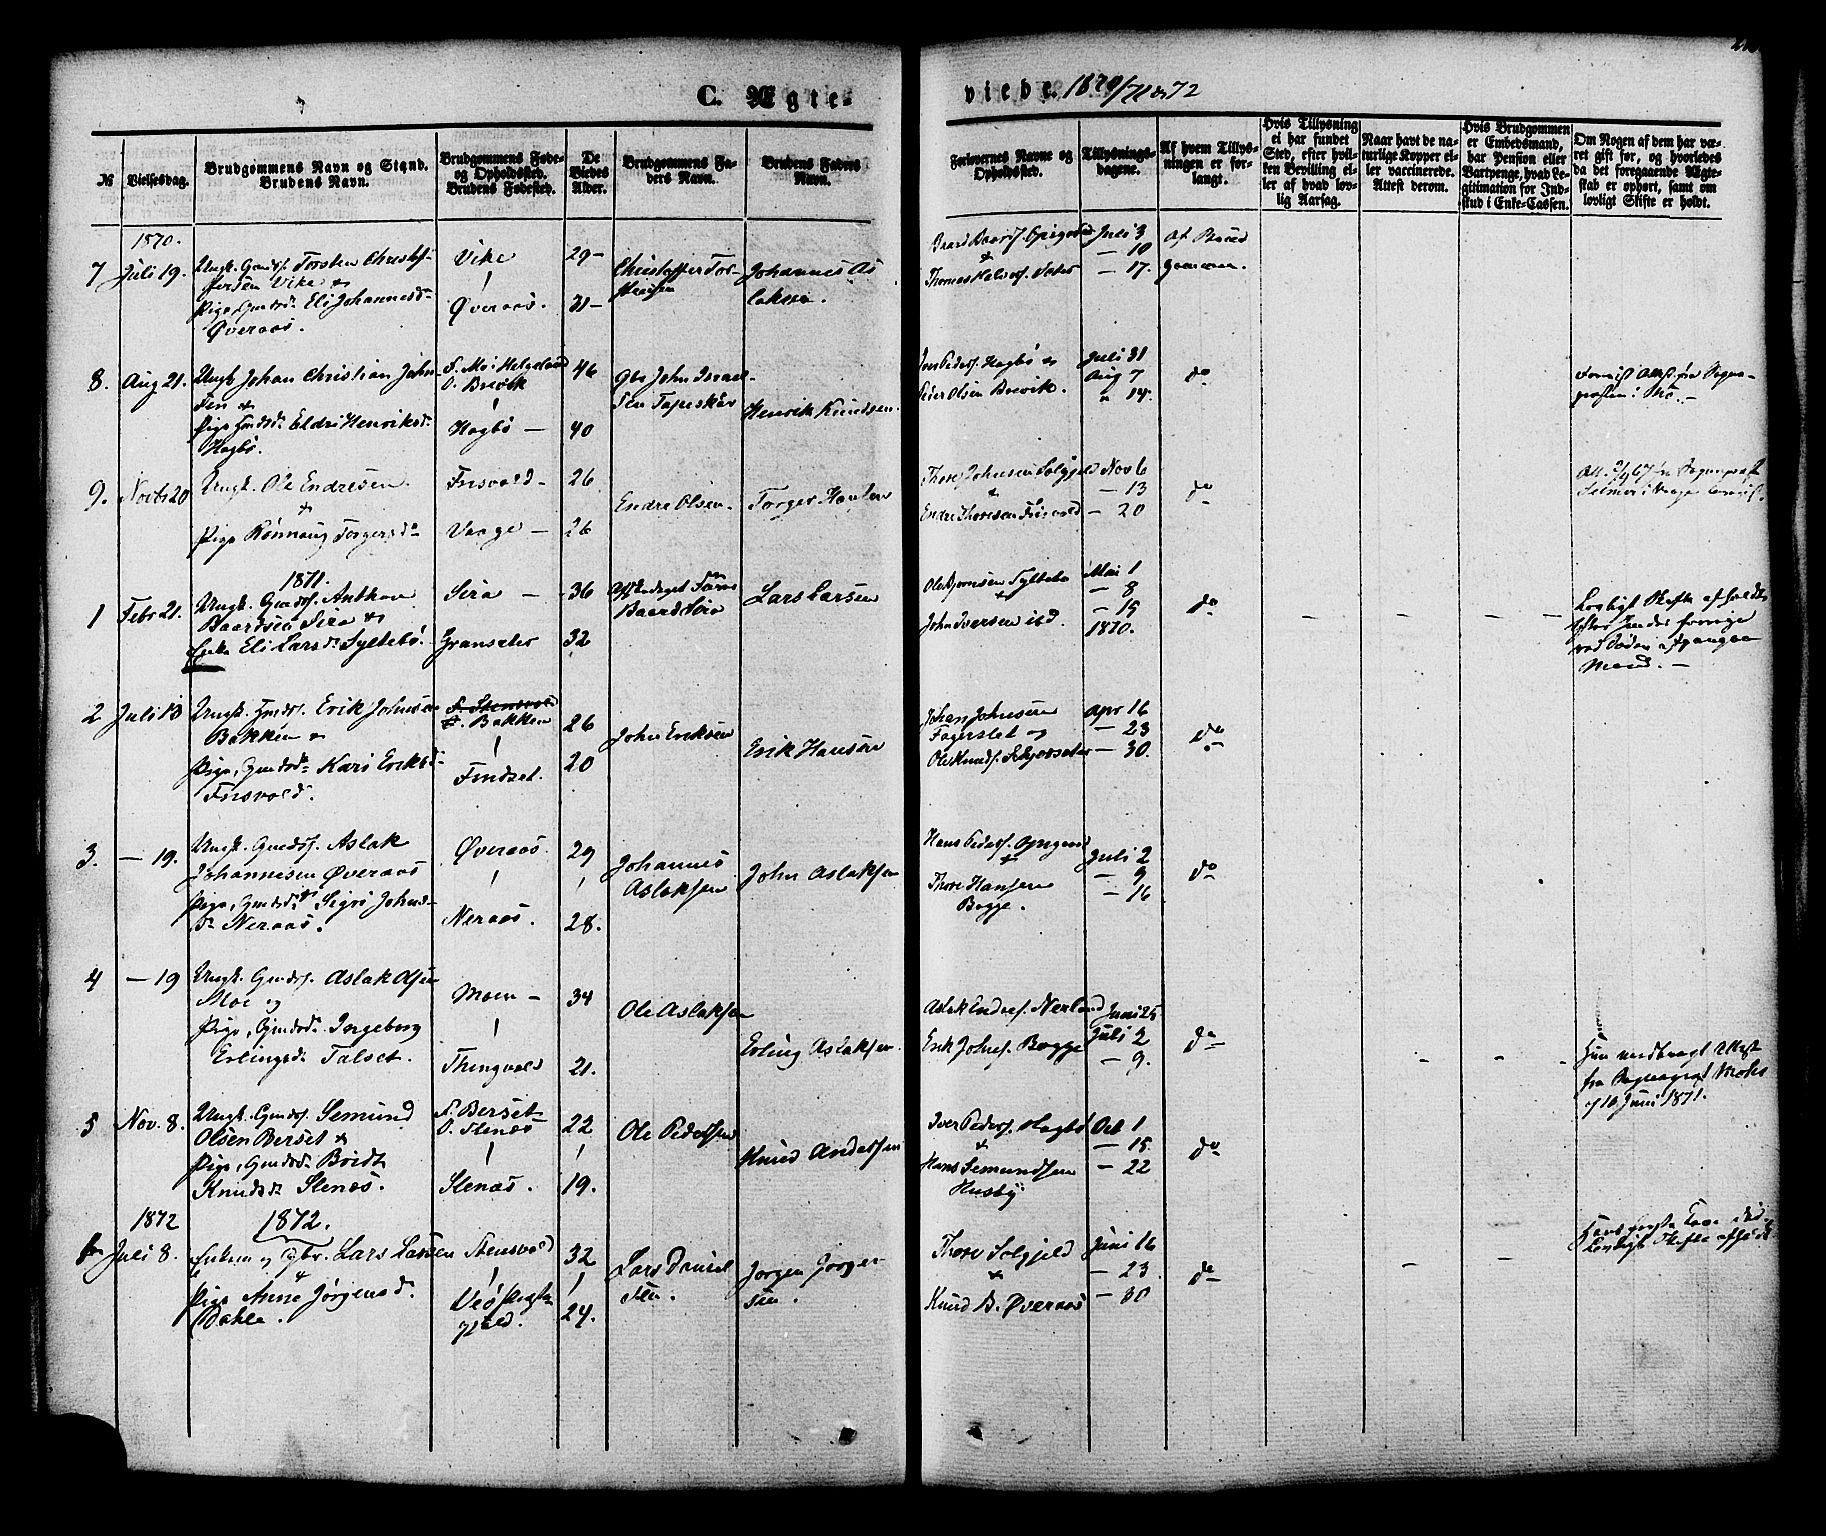 C. Ægte-
viede. 1870/71 & 72
№
Vielsesdag.
Brudgommens Navn og Stand.
Brudens Navn.
Brudgommens Føde-
og Opholdssted.
Brudens Fødested.
De
Viedes
Alder.
Brudgommens Fa-
ders Navn.
Brudens Faders
Navn.
Forlovernes Navne og
Opholdssted.
Tillysnings-
dagene.
Af hvem Tillys-
ningen er for-
langt.
Hvis Tillysning
ei har fundet
Sted, efter hvil-
ken Bevilling el-
ler af hvad lov-
lig Aarsag.
Naar havt de na-
turlige Kopper el-
ler vaccinerede.
Attest derom.
Hvis Brudgommen
er Embedsmand,
har Pension eller
Vartpenge, hvad Le-
gitimation for Ind-
skud i Enke-Cassen.
Om Nogen af dem har væ-
ret gift før, og hvorledes
da det foregaaende Ægte-
skab er ophørt, samt om
lovligt Skifte er holdt.
1870.
7 Juli 19. Ungk. Gmds. Torsten Christof-
fersen Vike &
Pige Gmdsd. Eli Johannesd.
Øveraas.
Vike
Øveraas.
29 -
31 -
Christoffer Tor-
stensen
Johannes As
laksen.
Thomas Halvors. Sæter
Juli 3
- 10
- 17.
Af Brud
gommen.
8. Aug 21. Ungk. Johan Christian John-
sen &
Pige Gmdsd. Eldri Henriksd.
Hagbø.
F. Mo i Helgeland
O. Brevik
Hagbø -
46
40
John Israel
sen
Henrik Knudsen.
Jens Peders. Hagbø &
Peder Olsen Brevik.
Juli 31
Aug 7
" 14.
do
9. Novbr 20 Ungk. Ole Endresen.
&
Pige Rønnaug Torgersd.
Frisvold -
Vaage -
26
26
Endre Olsen.
Torger Hansen
Thore Johnsen Solgjeld
&
Endre Thoresen Frisvold
Nov 6
- 13
- 20
do
1871.
1 Febr 21. Ungk. Gmds. Anthon
Baardsen Sira &
Enke Eli Larsd. Syltebø.
Sira -
Gransæter
36
32
Baard Sira
Lars Larsen
Ole Bjørnsen Syltebø
&
John Iversen ibd.
Mai 1
- 8
- 15
1870.
do
Lovligt Skifte afholdt
efter hendes forrige
ved Døden afgangne
Mand. -
2 Juli 13 Ungk. Gmds. Erik Johnsen
Bakken &
Pige, Gmdsd. Kari Eriksd.
Frisvold.
F. Stensvold
O. Bakken
Findset.
26
20
John Eriksen
Erik Hansen
Johan Johnsen
Fagerslet og
Ole Knuds. Skjorsæter
Apr 16
- 23
- 30.
do
3. - 19. Ungk. Gmds. Aslak
Johannesen Øveraas
Pige, Gmdsd. Sigri Johns-
d. Neraas.
Øveraas.
Neraas.
29
28.
Johannes
Aslaksen
John Aslaksen
Hans Peders. Opigard
&
Thore Hansen
Bogge.
Juli 2
- 9
- 16
do
4 - 19 Ungk. Gmds. Aslak Olsen
Moe og
Pige, Gmdsd. Ingeborg
Erlingsd. Talset.
Moen -
Thingvold
34
21.
Ole Aslaksen
Erling Aslaksen.
Aslak Endres. Nerland
Erik Johns. Bogge
Juni 25
Juli 2
- 9.
do
Hun medbragt Attest
fra Sognepræst Mohs
Juni 1871.
5 Nov. 8. Ungk. Gmds. Semund
Olsen Berset &
Pige, Gmdsd. Bridt
Knudsd. Stenæs.
F. Berset
O. Stenæs
Stenæs.
22
19.
Ole Pedersen
Knud Andersen
Iver Peders. Hagbø
&
Hans Semundsen
Husby
Oct 1
- 15
- 22
do
1872
1872.
6 Juli 8. Enkem. og Gbr. Lars Larsen
&
Pige Anne Jørgensd.
Dahle.
Stensvold
Veø Prestegjeld.
32
24.
Lars Daniel
sen.
Jørgen Jørgen-
sen.
Thore Solgjeld
&
Knud B. Øveraas
Juni 16
- 23
- 30
do